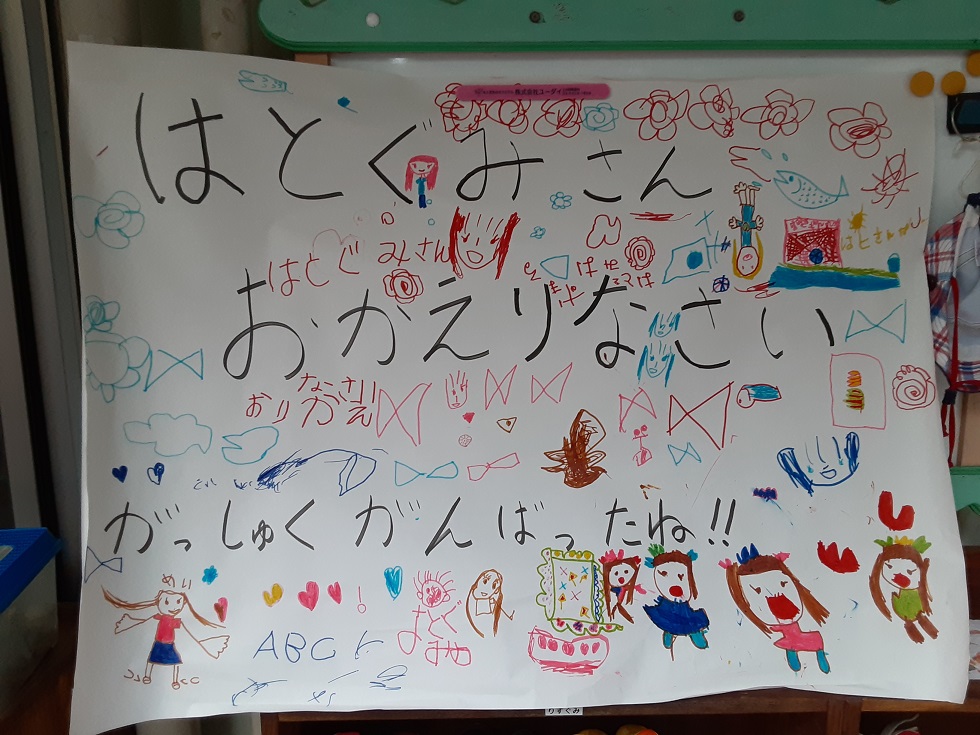 株式会社ユーダイ
はとぐみさん
はとぐみさん
はとさんが
おかえりなさい
なさい
おりかえ
がっしゅくがんばったね!!
ABC
りすぐみ